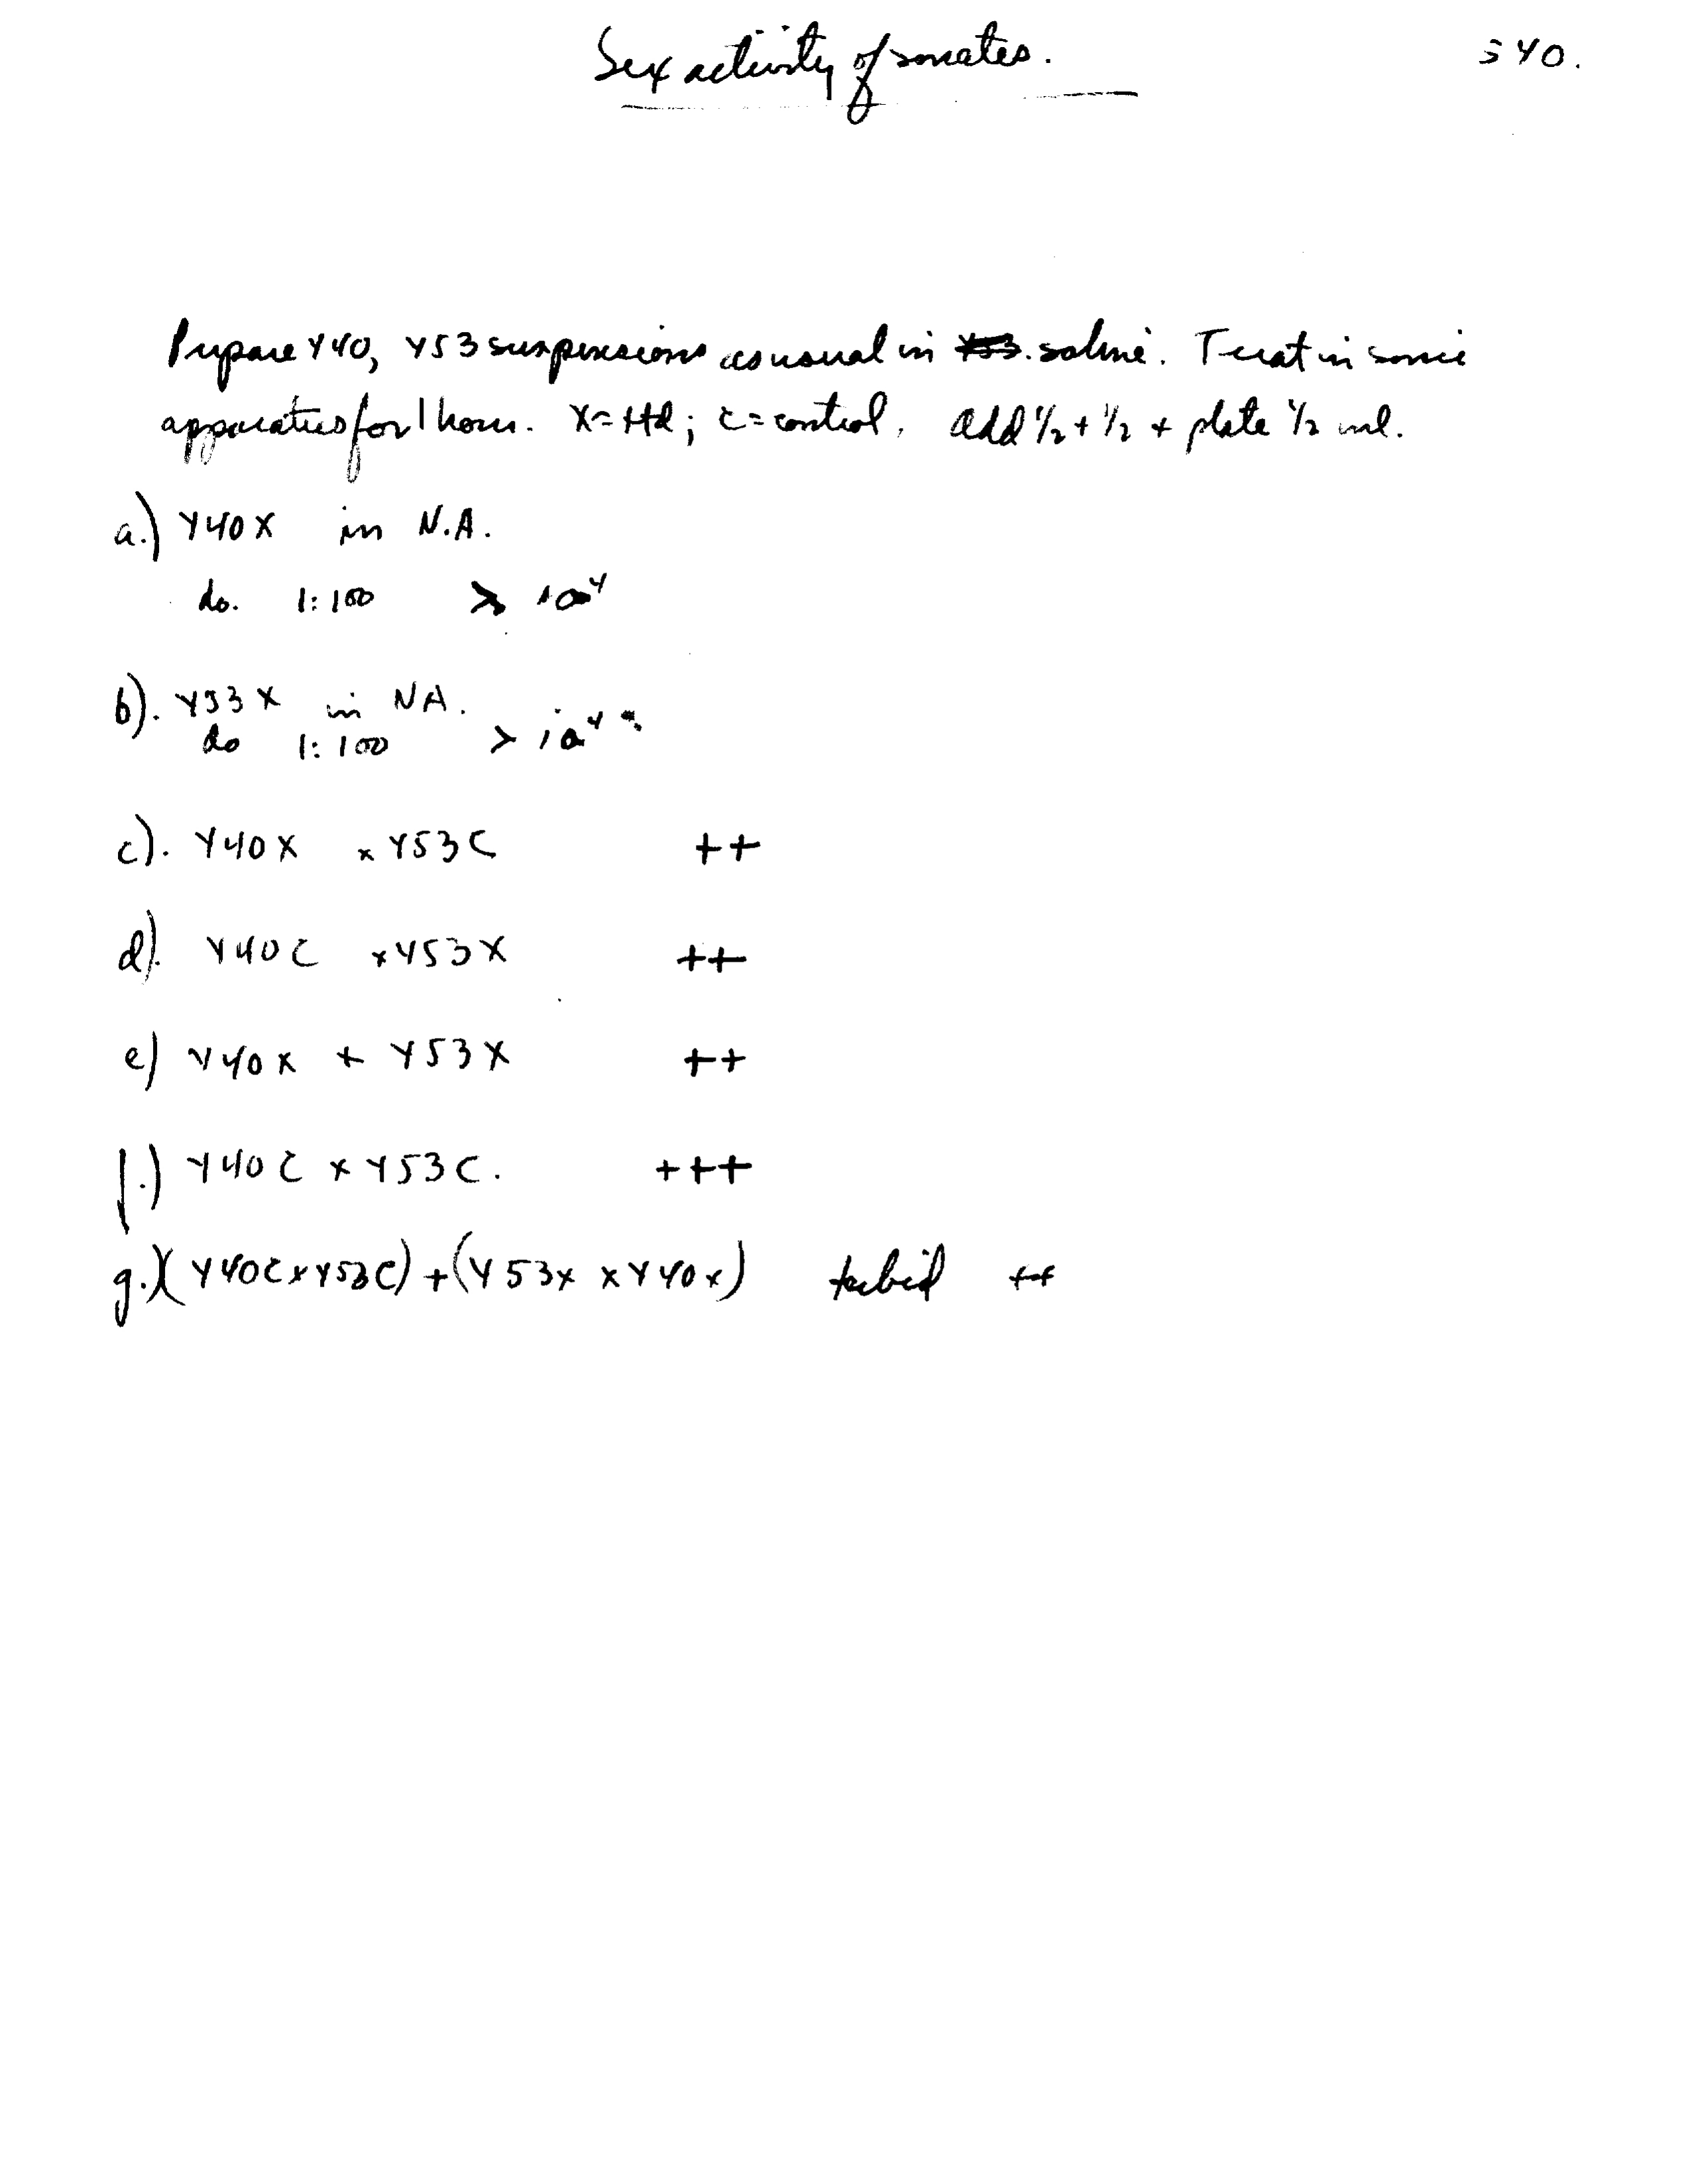 Sex activity of sonates. 540.
Prepare Y40, Y53 suspensions as usual in Y53. saline. Treat in sonic
apparatus for 1 hour. X=ttd; C=control. Add 1/2 + 1/2 + plate 1/2 ml.
a.) Y40X in N.A.
do. 1:100 > 10⁴
b). Y53X in NA.
do 1:100 > 10⁴
c). Y40X x Y53C ++
d). Y40C x Y53X ++
e) Y40X + Y53X ++
f.) Y40C x Y53C. +++
g.) (Y40C x Y53C) + (Y53X x Y40X) turbid ++